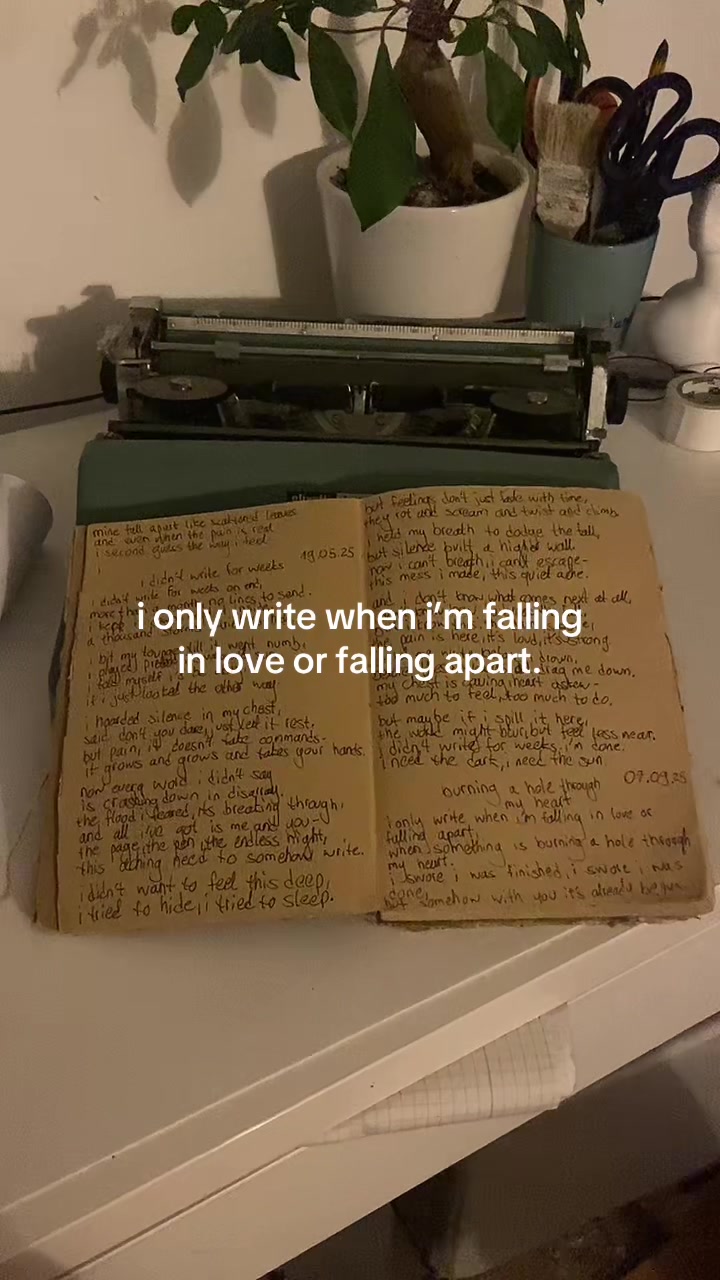 mine fell apart like scattered leaves
and even when the pain is real
i second guess the way i feel.
19.05.25
i didn't write for weeks
i didn't write for weeks on end,
more than a month, no lines to send.
i kept
a thousand
i bit my tongue till it went numb,
i played
told myself i
if i just looked the other way.
i hoarded silence in my chest,
said don't you dare, just let it rest,
but pain, it doesn't take commands-
it grows and grows and takes your hands.
now every word i didn't say
is crashing down in disarray.
the flood i feared, its breaking through,
and all i've got is me and you-
the page, the pen, the endless night,
this aching need to somehow write.
i didn't want to feel this deep,
i tried to hide, i tried to sleep.
but feelings don't just fade with time,
they rot and scream and twist and climb.
i held my breath to dodge the fall,
but silence built a higher wall
now i can't breath, i can't escape-
this mess i made, this quiet ache.
and i don't know what comes next at all,
the pain is here, it's loud, it's strong.
drown,
drag me down.
my chest is caving, heart askew-
too much to feel, too much to do.
but maybe if i spill it here,
the world might blur, but feel less near.
i didn't write for weeks. i'm done.
i need the dark, i need the sun
07.09.25
burning a hole through
my heart
i only write when i'm falling in love or
falling apart,
when something is burning a hole through
my heart.
i swore i was finished, i swore i was
done,
but somehow with you it's already begun.
i only write when i'm falling
in love or falling apart.